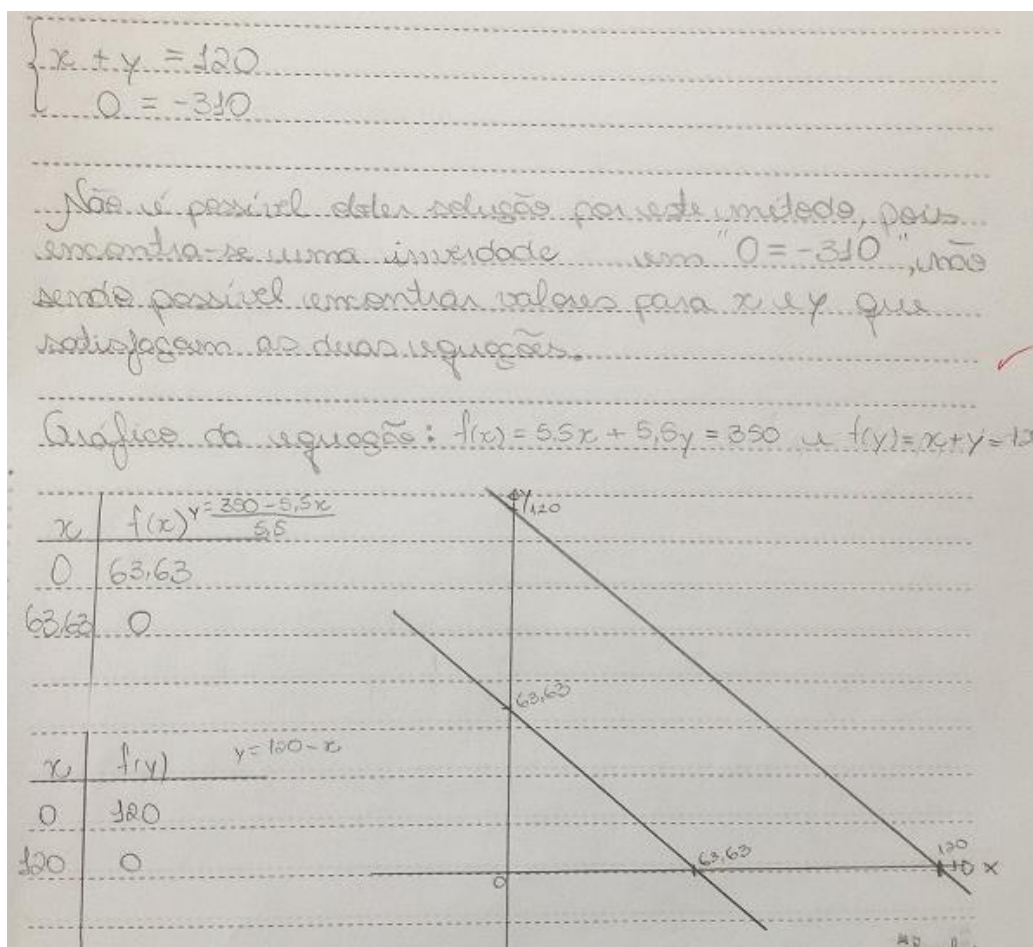 x + y = 120
0 = -310
Não é possível obter solução por este método, pois
encontra-se uma inverdade em "0 = -310", não
sendo possível encontrar valores para x e y que
satisfaçam as duas equações.
Gráfico da equação: f(x) = 5,5x + 5,5y = 350 e f(y) = x + y = 12
x f(x) y = 350 - 5,5x
5,5
0 63,63
63,63 0
x f(y) y = 120 - x
0 120
120 0
y
120
63,63
63,63
120
0
x